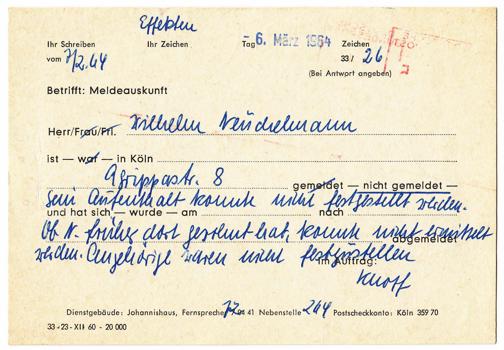 Effekten
Ihr Schreiben Ihr Zeichen Tag -6. März 1964 Zeichen
vom 7/2.64 33/ 26
(Bei Antwort angeben)
Betrifft: Meldeauskunft
Herr/Frau/Frl. Wilhelm
ist — war — in Köln
Agrippastr. 8
gemeldet — nicht gemeldet —
Sein Aufenthalt konnte nicht festgestellt werden.
und hat sich — wurde — am nach
Ob N. früher dort gewohnt hat, konnte nicht ermittelt
abgemeldet
werden. Angehörige waren nicht festzustellen
Im Auftrag:
Knoff
Dienstgebäude: Johannishaus, Fernsprecher 41 Nebenstelle 264 Postscheckkonto: Köln 359 70
33-23-XII 60 - 20 000